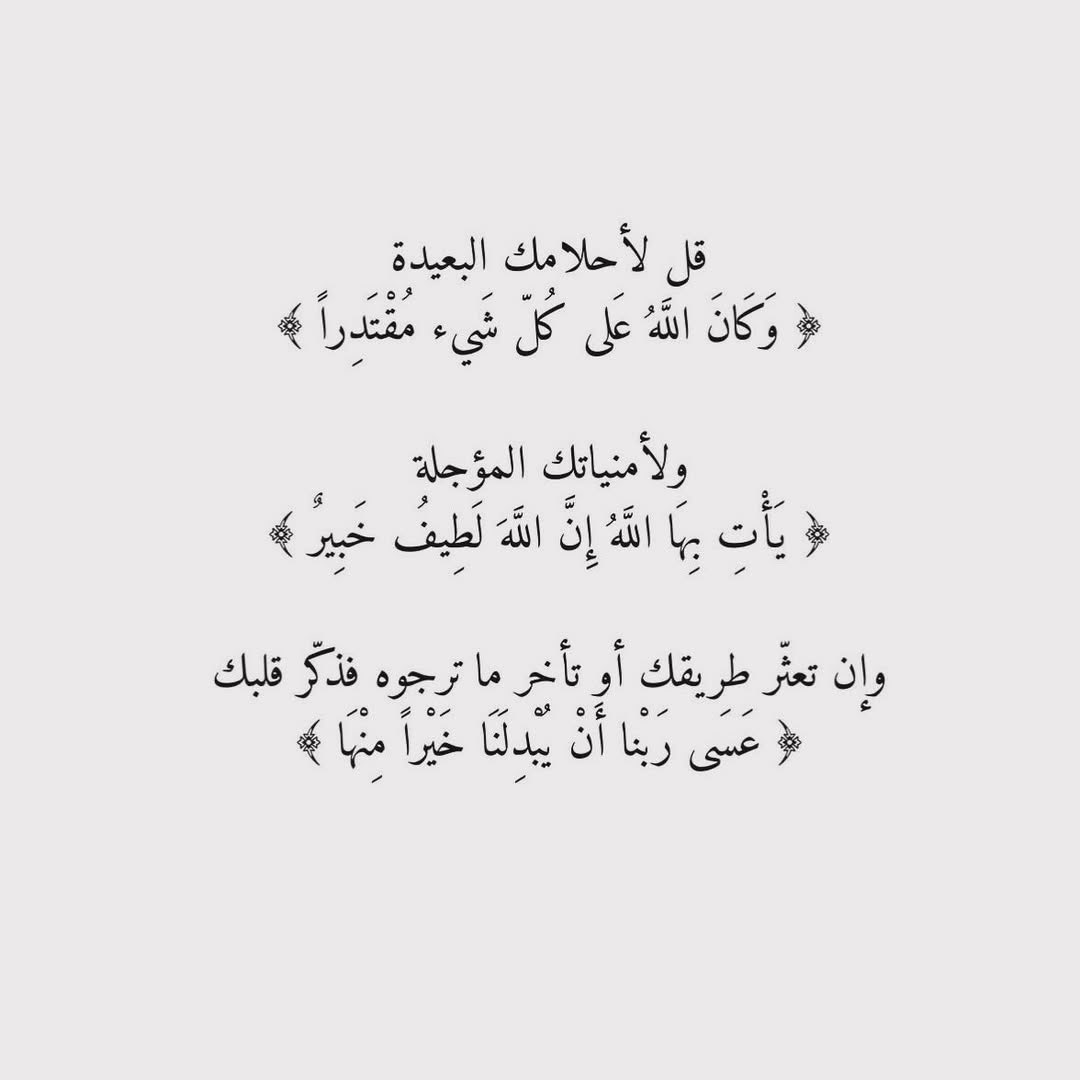 قل لأحلامك البعيدة
﴿ وَكَانَ اللَّهُ عَلى كُلّ شَيء مُقْتَدِراً ﴾
ولأمنياتك المؤجلة
﴿ يَأْتِ بِهَا اللَّهُ إِنَّ اللَّهَ لَطِيفُ خَبِيرٌ ﴾
وإن تعثّر طريقك أو تأخر ما ترجوه فذكّر قلبك
﴿ عَسَى رَبْنا أَنْ يُبْدِلَنَا خَيْراً مِنْهَا ﴾